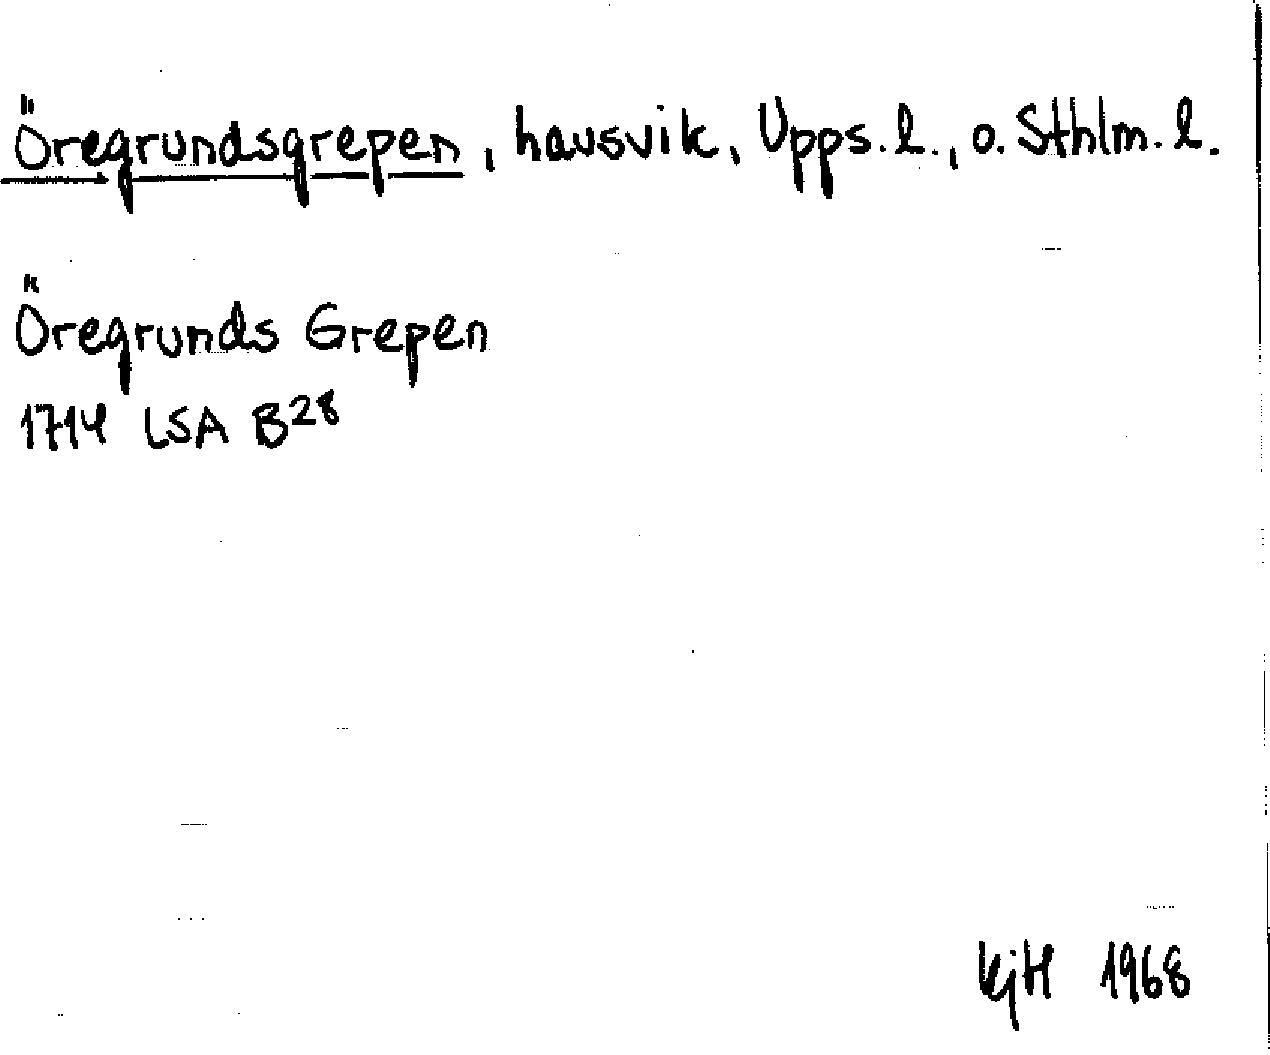 Öregrundsgrepen, havsvik, Upps.l., o. Sthlm.l.
Öregrunds Grepen
1714 LSA B28
KjH 1968